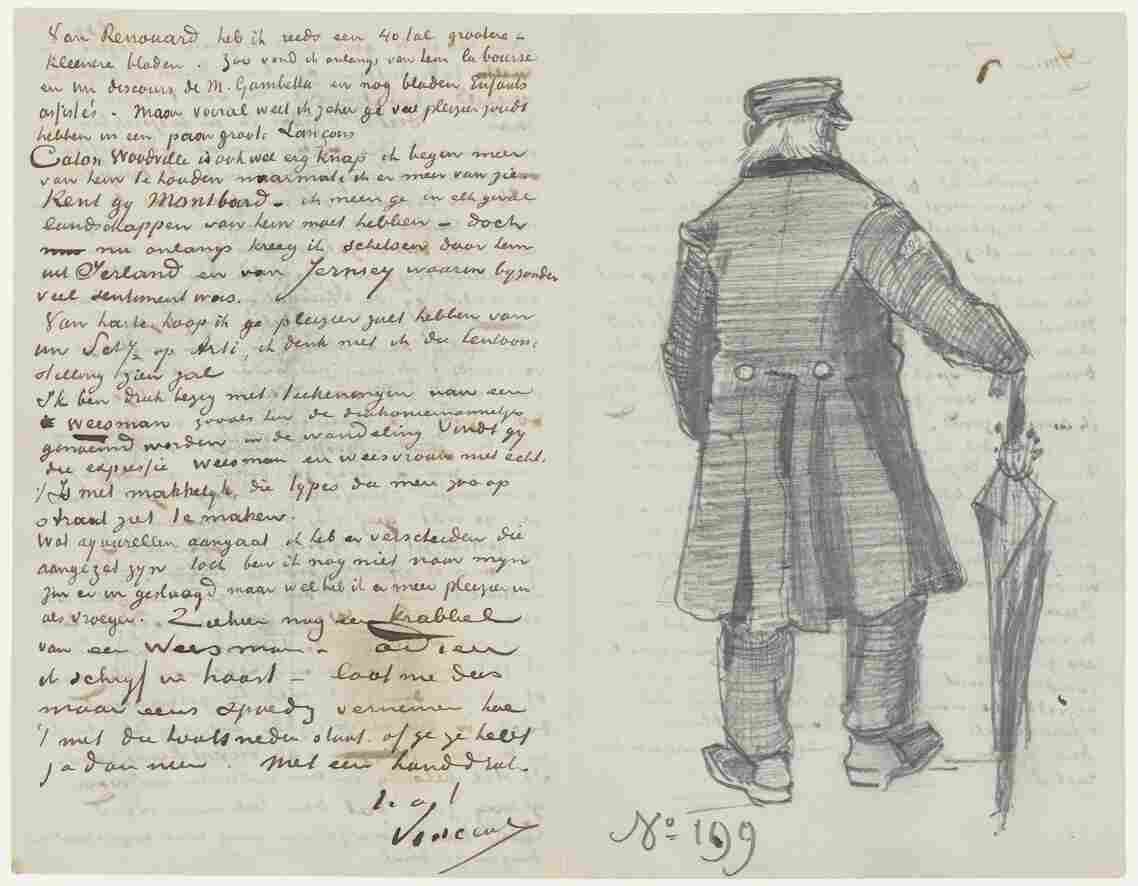 Van Renouard heb ik reeds een 40 tal grootere &
kleinere bladen. Zoo vond ik onlangs van hem la bourse
en un discours de M. Gambetta en nog bladen Enfants
assistés. Maar vooral weet ik zeker ge veel pleizier zoudt
hebben in een paar groote Lançons
Caton Woodville is ook wel erg knap ik begin meer
van hem te houden naarmate ik er meer van zie
Kent gy Montbard - ik meen ge in elk geval
landschappen van hem moet hebben - doch
nu onlangs kreeg ik schetsen door hem
uit Ierland en van Jersey waarin byzonder
veel sentiment was.
Van harte hoop ik ge pleizier zult hebben van
uw op Arti, ik denk niet ik die tentoon:
stelling zien zal
Ik ben druk bezig met teekeningen van een
weesman zooals hier de diakoniemannetjes
genoemd worden in de wandeling Vindt gy
die expressie weesman en weesvrouw niet echt.
't Is niet makkelyk, die types die men zoo op
straat ziet te maken.
Wat aquarellen aangaat ik heb er verscheiden die
aangezet zyn toch ben ik nog niet naar myn
zin er in geslaagd maar wel heb ik er meer pleizier in
als vroeger. Ziehier nog een krabbel
van een Weesman. adieu
ik schryf in haast - laat me dus
maar eens spoedig vernemen hoe
't met die houtsneden staat of ge ze hebt
ja dan neen. Met een handdruk.
t. à t.
Vincent
No 199